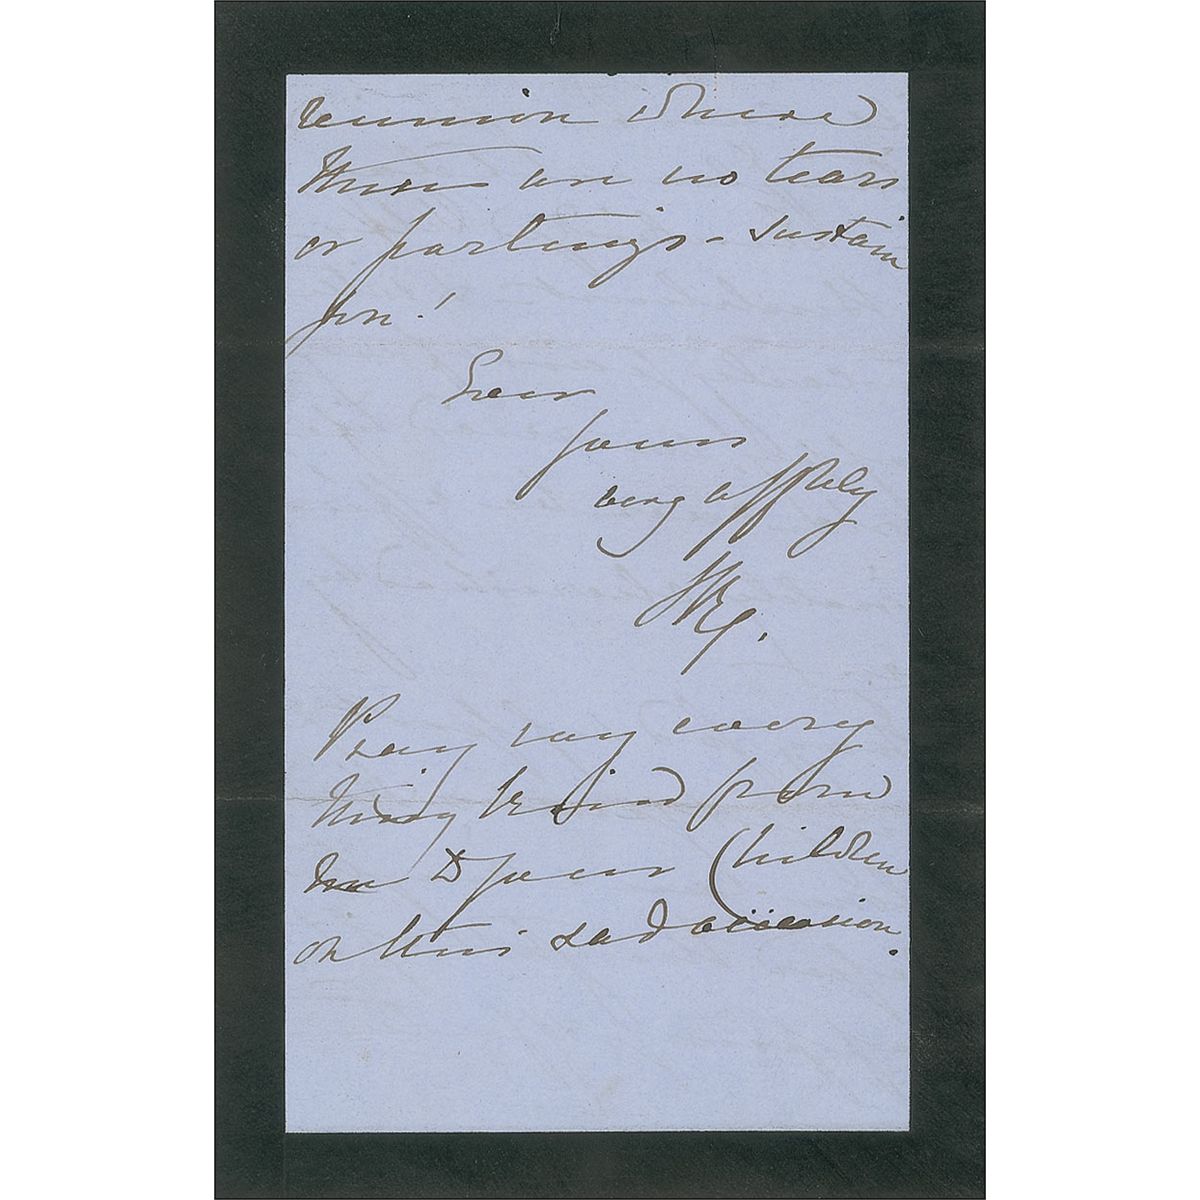 reunion where
there are no tears
or partings – sustain
you!
Ever
yours
very affly
VRg.
Pray say every
thing kind from
me to your Children
on this sad occasion.